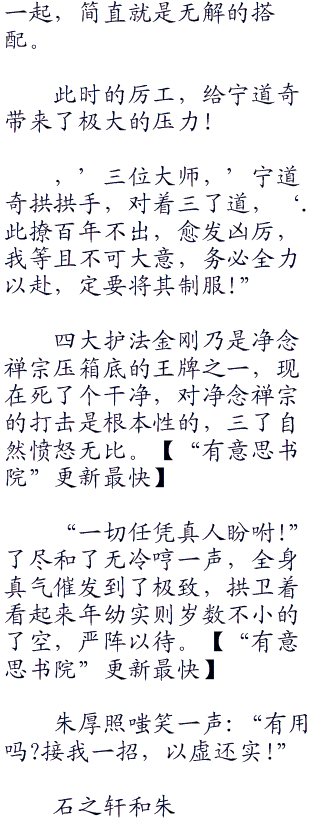 一起，简直就是无解的搭
配。
此时的厉工，给宁道奇
带来了极大的压力！
，’三位大师，’宁道
奇拱拱手，对着三了道，‘.
此撩百年不出，愈发凶厉，
我等且不可大意，务必全力
以赴，定要将其制服!”
四大护法金刚乃是净念
禅宗压箱底的王牌之一，现
在死了个干净，对净念禅宗
的打击是根本性的，三了自
然愤怒无比。【“有意思书
院”更新最快】
“一切任凭真人盼咐!”
了尽和了无冷哼一声，全身
真气催发到了极致，拱卫着
看起来年幼实则岁数不小的
了空，严阵以待。【“有意
思书院”更新最快】
朱厚照嗤笑一声:“有用
吗?接我一招，以虚还实!”
石之轩和朱